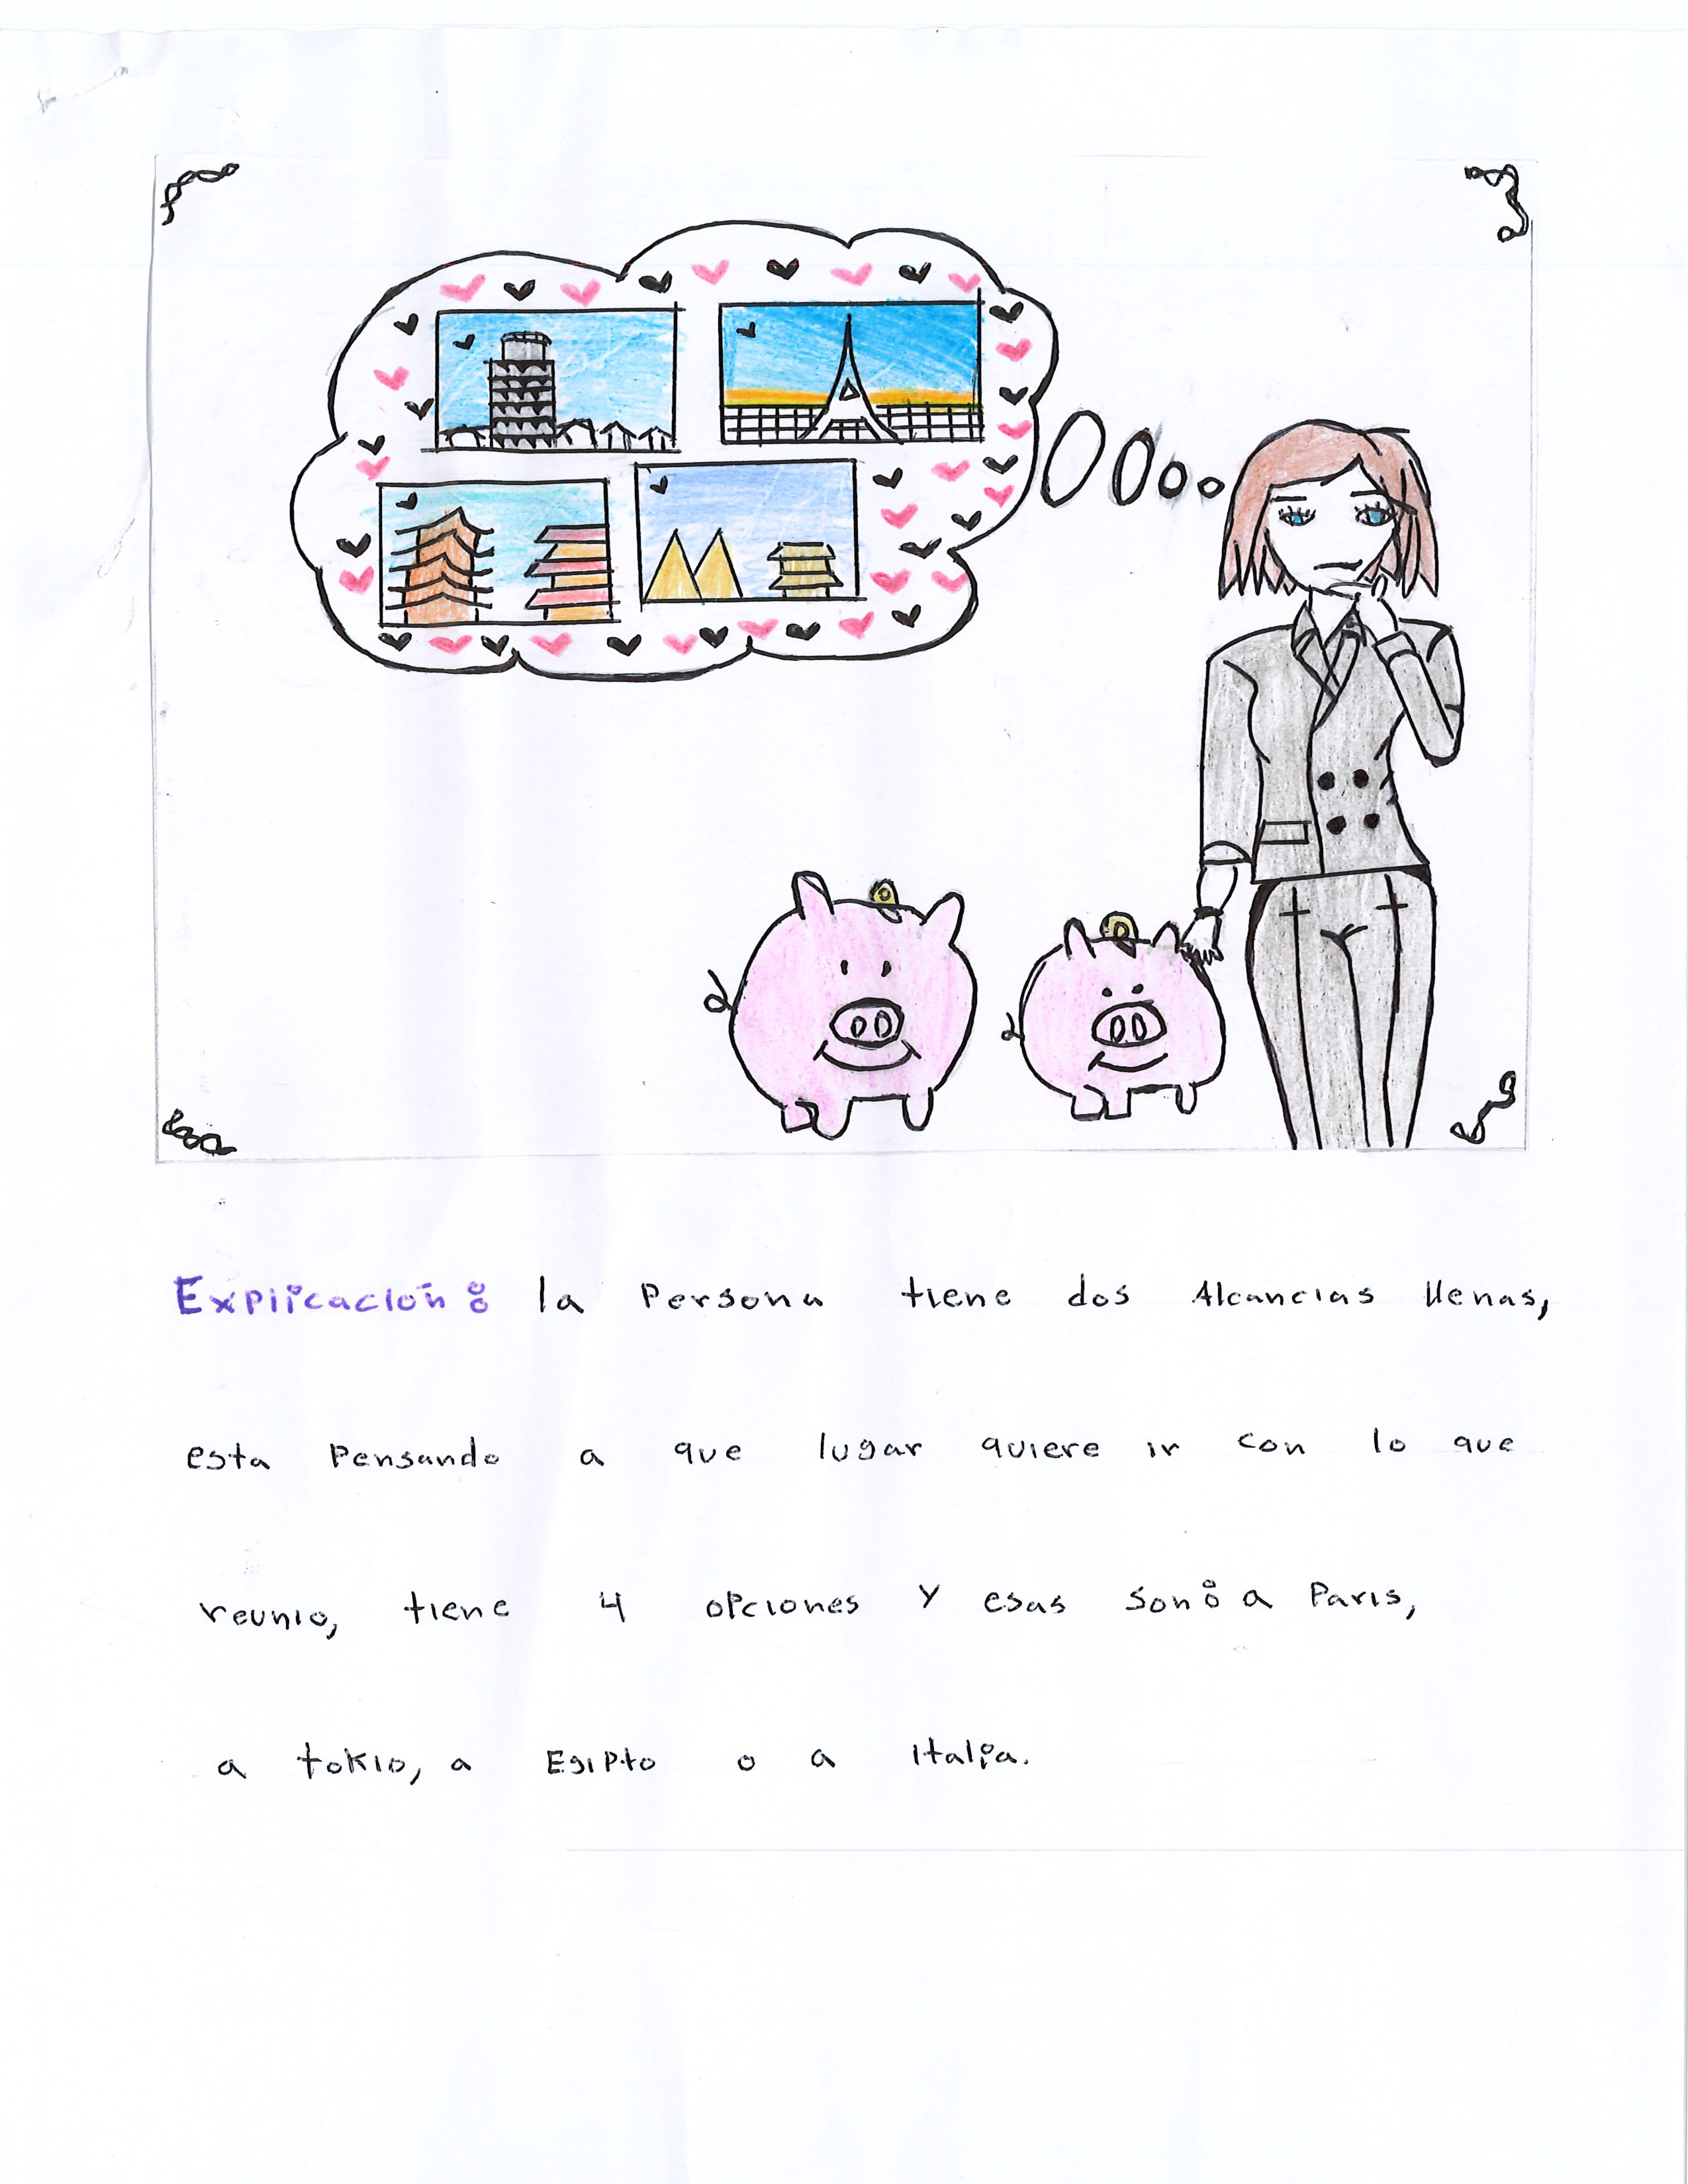 Explicación: la Persona tiene dos Alcancias llenas,
esta Pensando a que lugar quiere ir con lo que
reunio, tiene 4 opciones y esas son: a Paris,
a tokio, a Egipto o a italia.